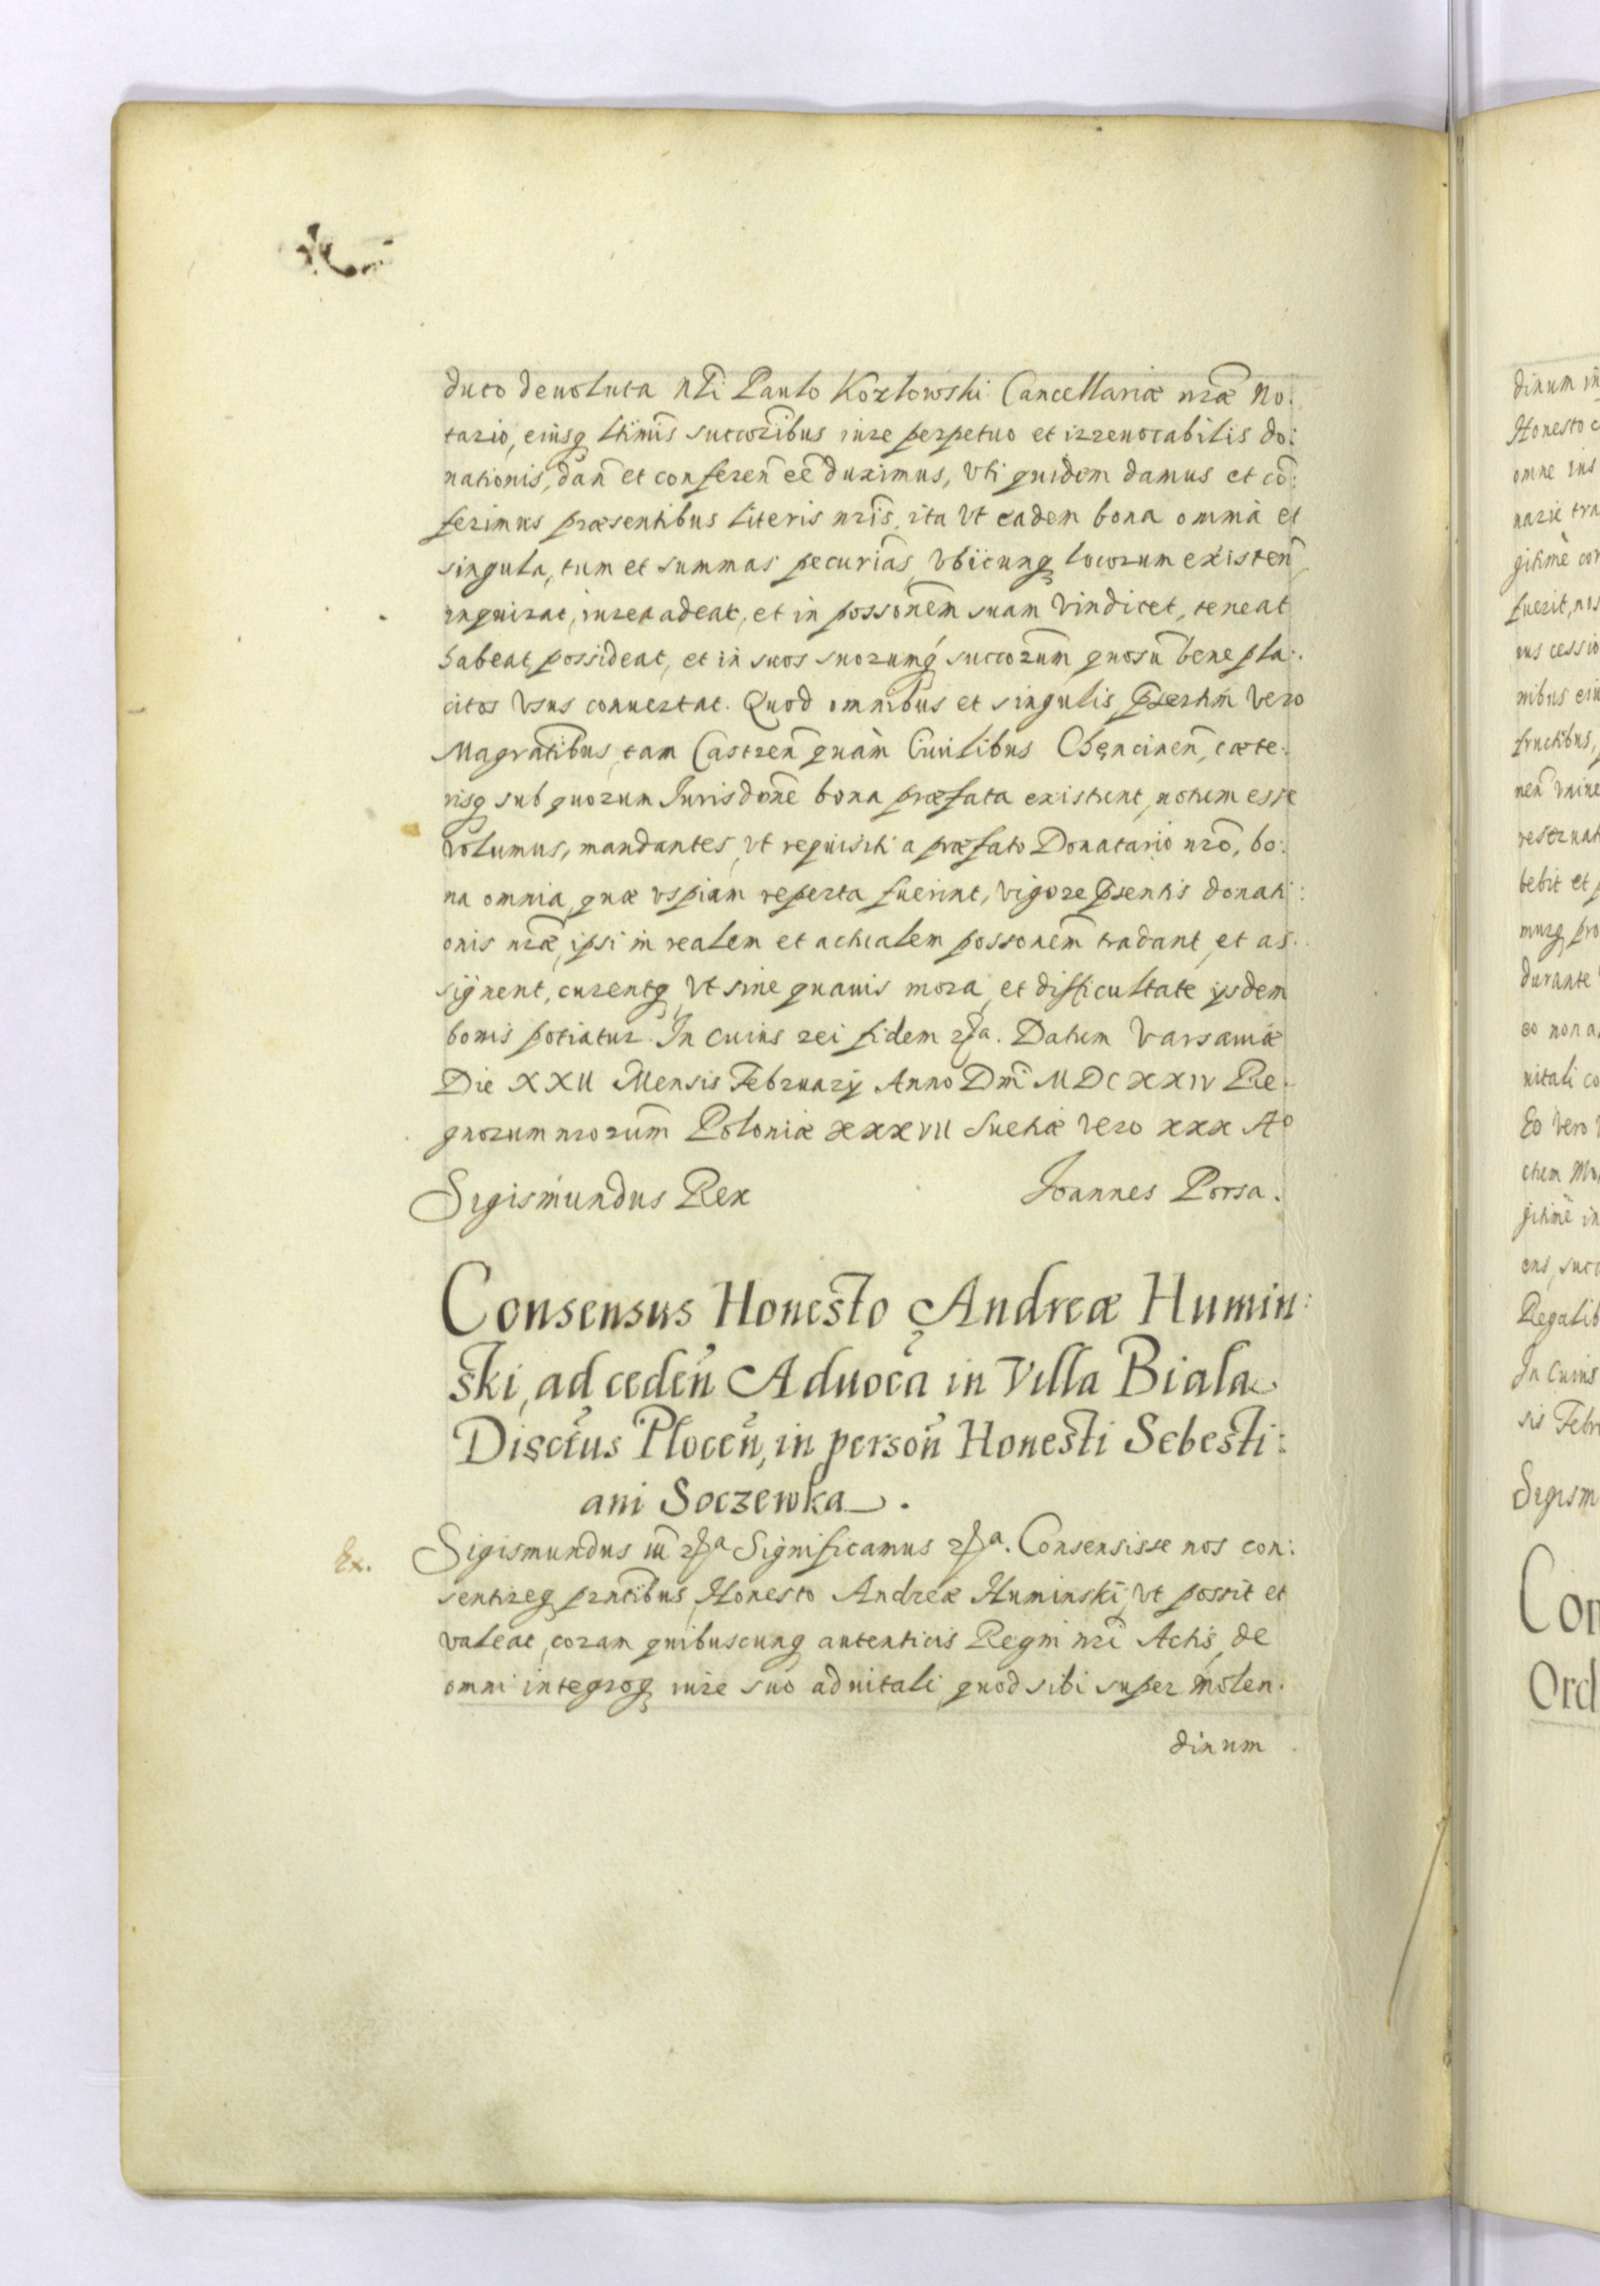 duto deuoluta nl̃i Paulo Kozlowski Cancellariæ nr̃æ no:
tario, eiusq; ltĩmis succor̃ibus iure perpetuo et irreuocabilis do:
nationis, dañ et confereñ eẽ duximus, vti quidem damus et cõ:
ferimus præsentibus literis nr̃is, ita vt eadem bona omnia et
singula, tum et summas pecuniãs, vbicunq; locorum existeñ
inquirat, iurea adeat, et in possonẽm suam vindicet, teneat
habeat, possideat, et in suos suorumq́ succorũm quosũ bene pla:
citos vsus conuertat. Quod omnibus et singulis, p̃sertim vero
Magratĩbus, tam Castreñ quàm Ciuilibus Chęncineñ, cæte:
risq; sub quorum Jurisdonẽ bona præfata existunt, notum esse
volumus, mandantes, vt requisiti a præfato Donatario nrõ, bo:
na omnia, quæ vspiam reperta fuerint, vigore p̃sentis donati:
onis nr̃æ, ipsi in realem et actualem possonẽm tradant, et as:
signent, curentq; vt sine quauis mora, et difficultate ysdem
bonis potiatur. In cuius rei fidem etc̃a. Datum Varsauiæ
Die XXII Mensis February Anno Dnĩ MDCXXIV Re:
gnorum nrorũm Poloniæ XXXVII Suetiæ vero XXX Aº
Sigismundus Rex Joannes Porsa.
Consensus Honesto Andreæ Humin:
ski, ad cedeñ Aduocã in Villa Biala
Disctũs Ploceñ, in persoñ Honesti Sebesti:
ani Soczewka.
Ex. Sigismundus iii̅ etc̃a Significamus etc̃a. Consensisse nos con:
sentireq; prntĩbus, Honesto Andreæ Huminski, vt possit et
valeat, coram quibuscunq; autenticis Regni nrĩ Actis, de
omni integroq; iure suo aduitali quod sibi super molen:
dinum
dinum in
Honesto
omne ius
fuerit, nos
ius cessio
nibus eiu
fructibus,
bebit et p
murq; pro
durante
eo non a
nitali co
Eo vero
ens, succ
Regalib
In cuius
sis Febr
Sigism
Con
Ord